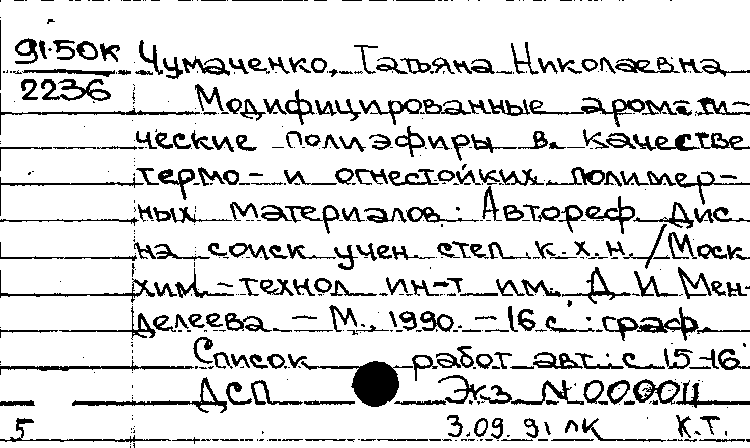 91-50К Чумаченко, Татьяна Николаевна
2236
Модифицированные аромати-
ческие полиэфиры в качестве
термо- и огнестойких полимер-
ных материалов : Автореф. Дис.
на соиск. учен. степ. к.х.н. / Моск.
хим.-технол. ин-т им. Д. И. Мен-
делеева. – М., 1990. – 16 с. : граф.
Список работ авт.: с. 15-16
ДСП Экз. N 000011
5 3.09.91 ЛК К.Т.